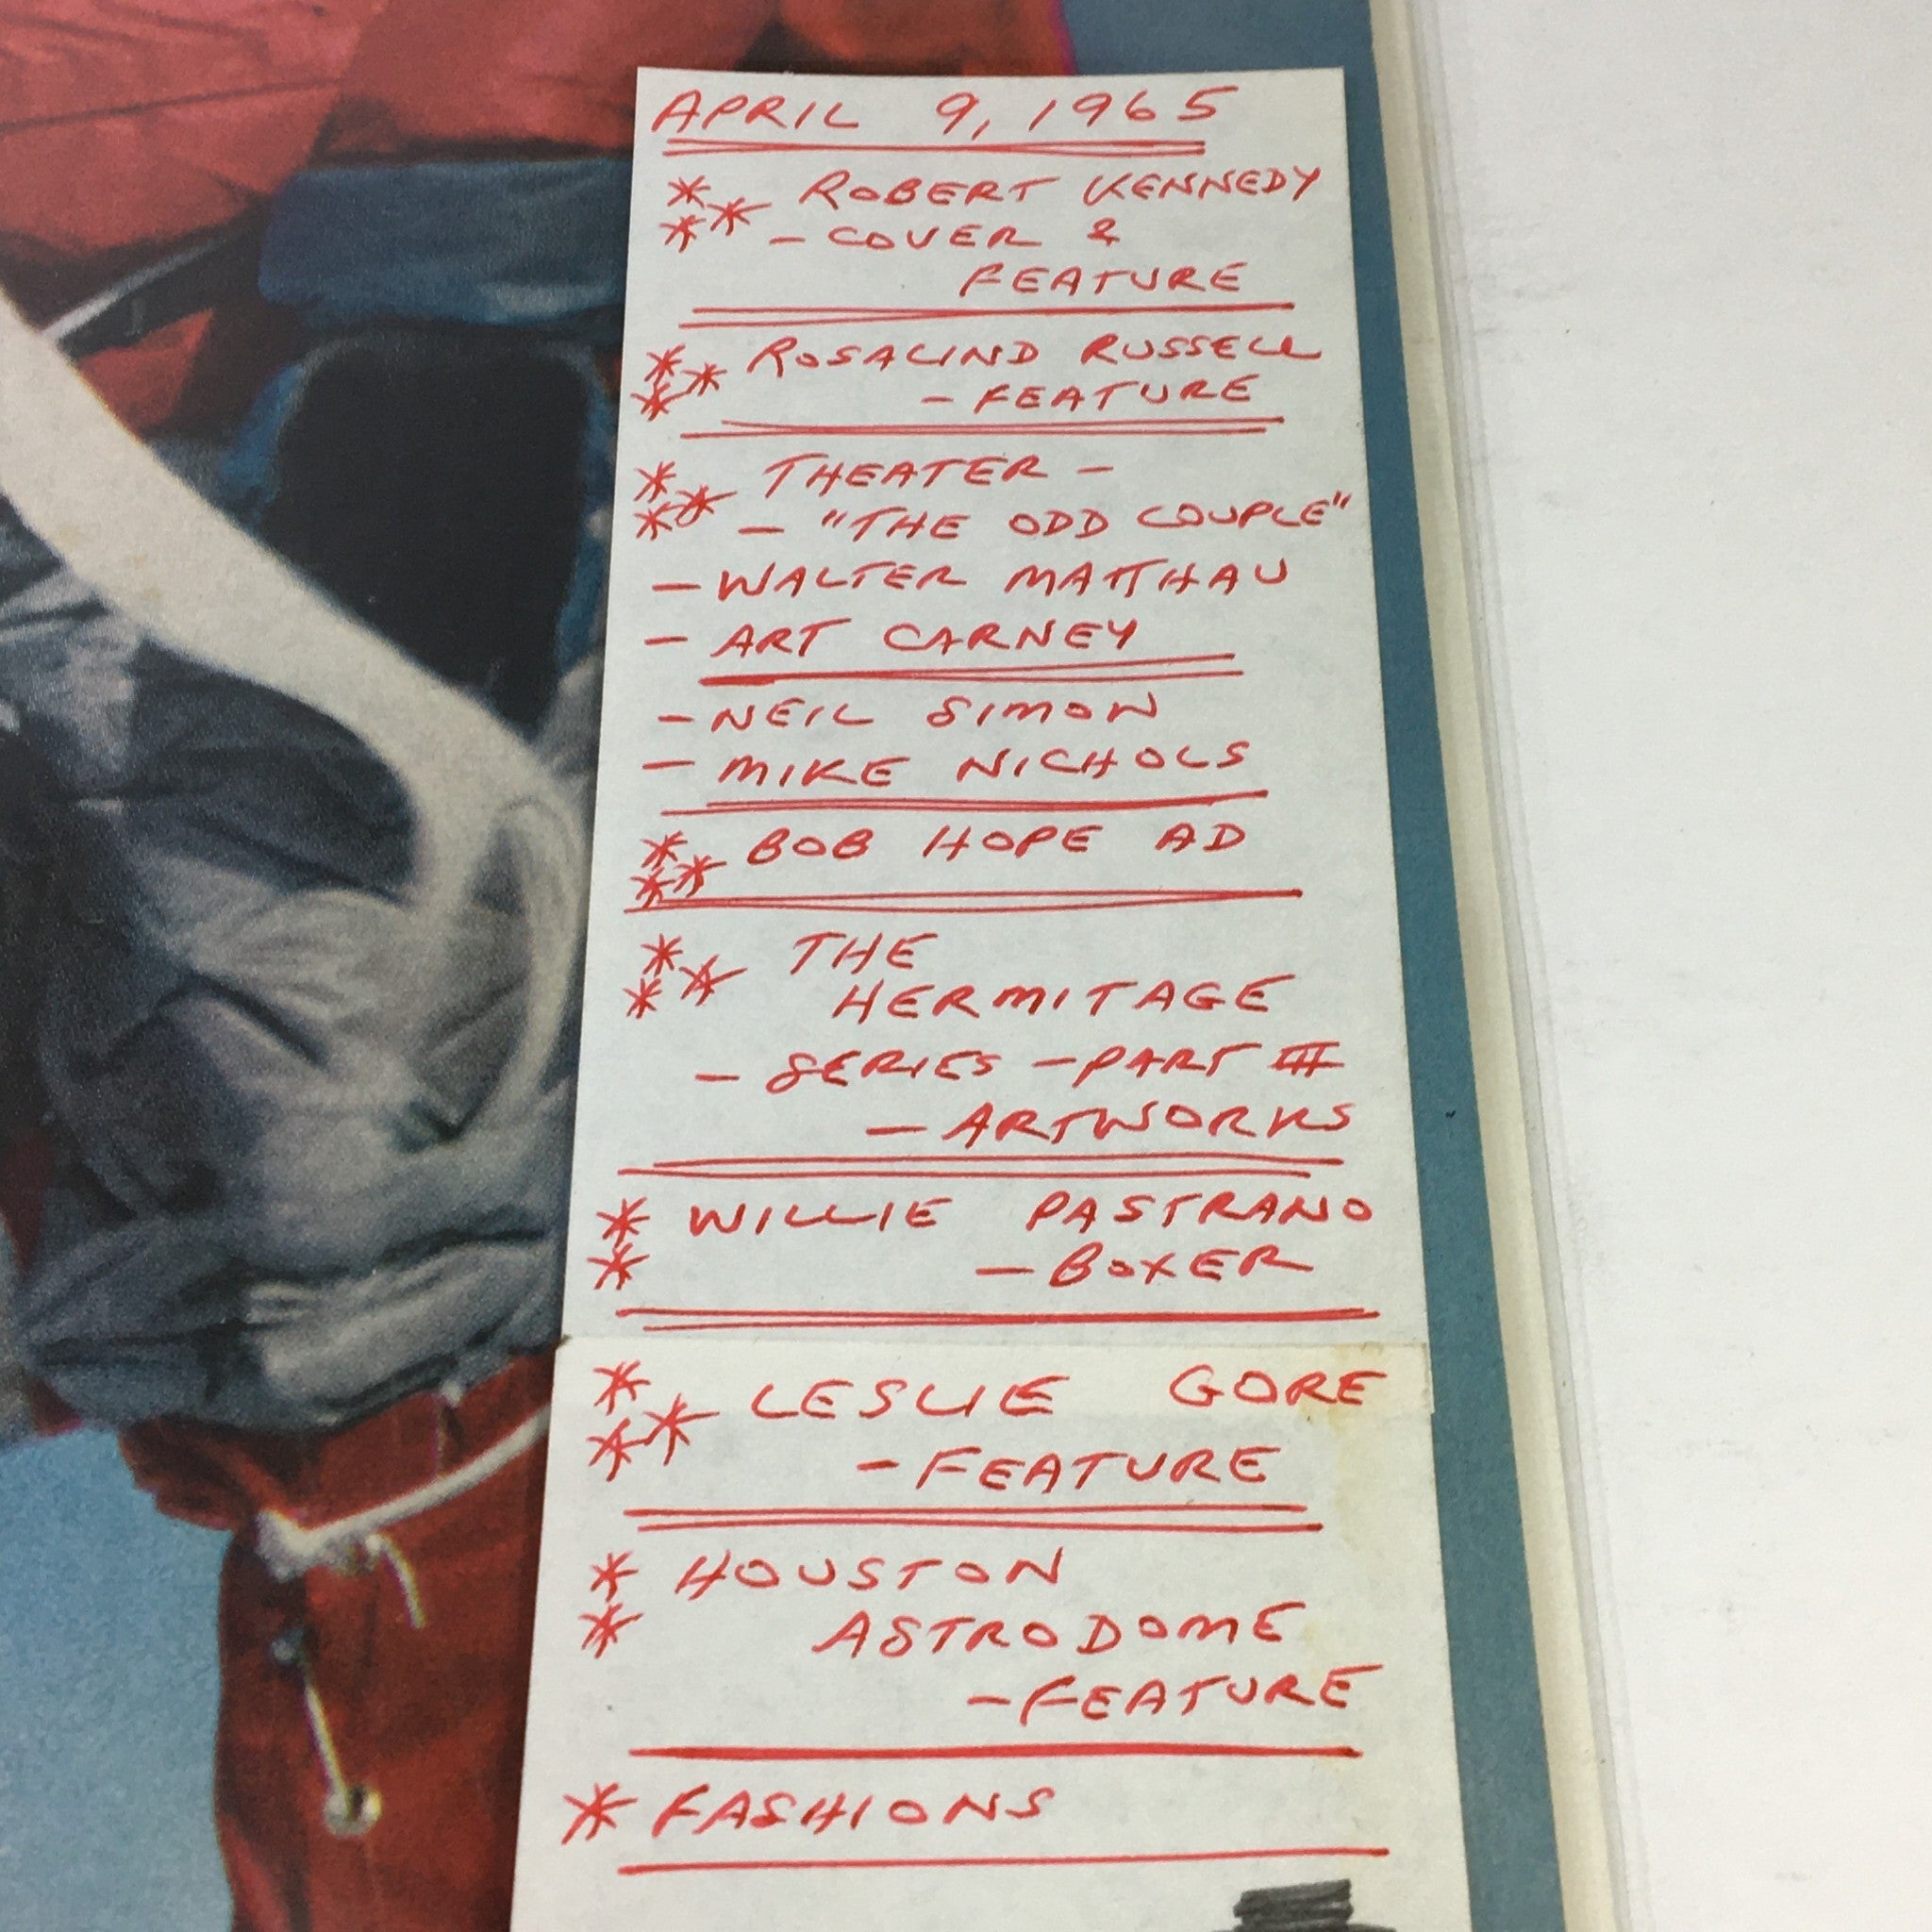 APRIL 9, 1965
*** ROBERT KENNEDY
- COVER &
FEATURE
*** ROSALIND RUSSELL
- FEATURE
*** THEATER -
- "THE ODD COUPLE"
- WALTER MATTHAU
- ART CARNEY
- NEIL SIMON
- MIKE NICHOLS
*** BOB HOPE AD
*** THE
HERMITAGE
- SERIES - PART III
- ARTWORKS
** WILLIE PASTRANO
- BOXER
*** LESLIE GORE
- FEATURE
** HOUSTON
ASTRODOME
- FEATURE
* FASHIONS